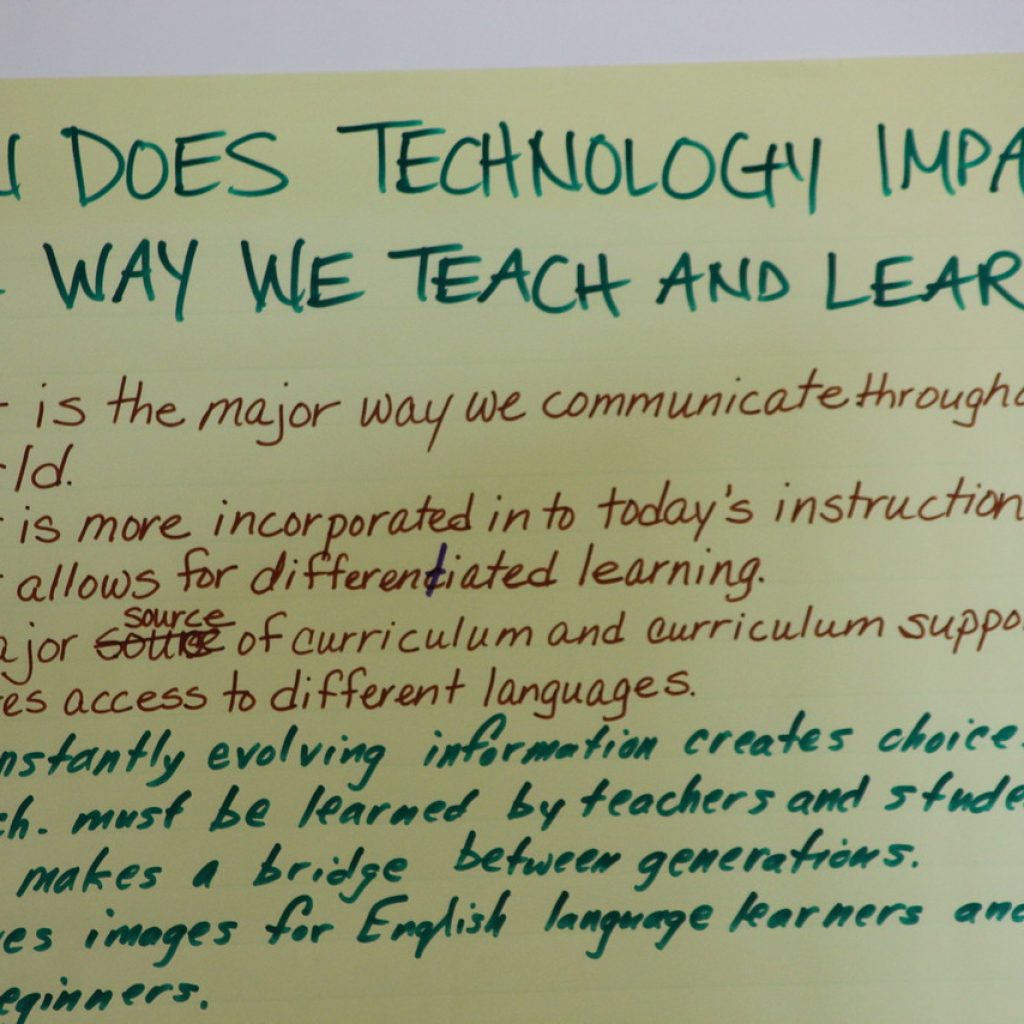 DOES TECHNOLOGY IMPA
WAY WE TEACH AND LEAR
is the major way we communicate througho
rld.
is more incorporated in to today's instruction
allows for differentiated learning.
source
ajor source of curriculum and curriculum suppo
es access to different languages.
nstantly evolving information creates choice
ch. must be learned by teachers and stude
makes a bridge between generations.
es images for English language learners and
eginners.